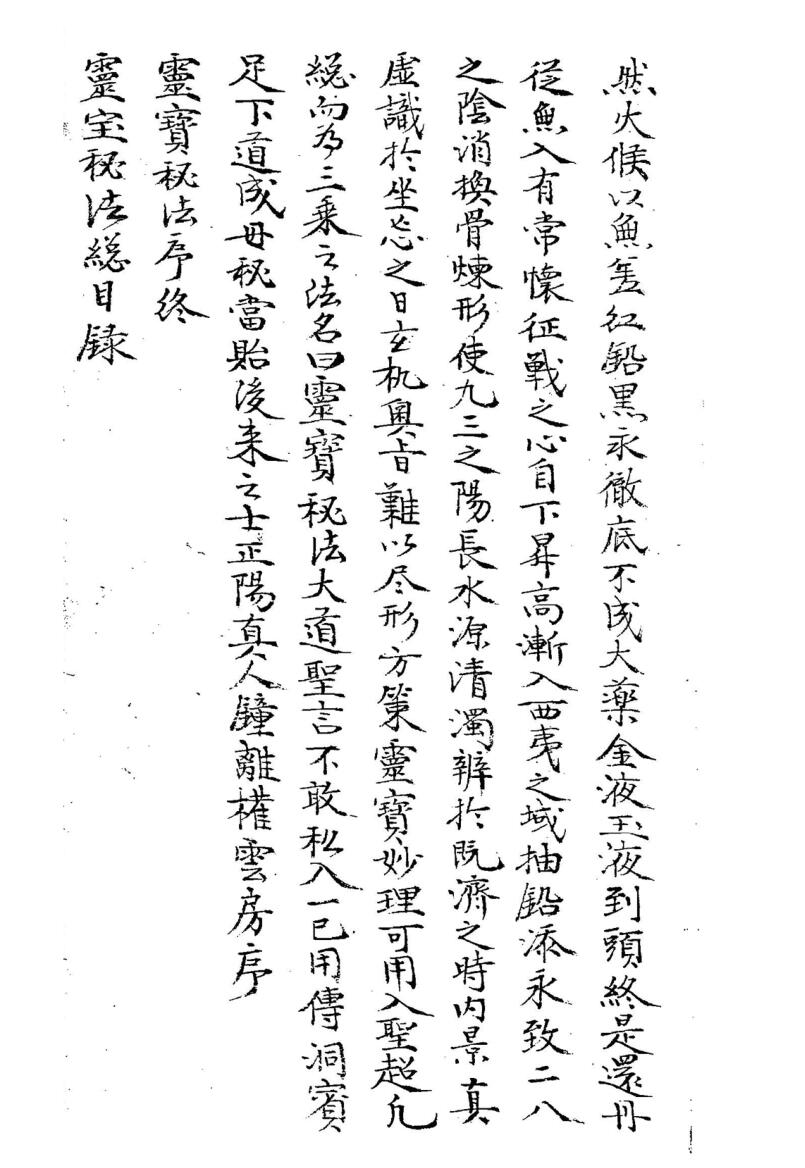 然火候以魚差紅鉛黒永徹底不成大藥金液玉液到頭終是還丹
從魚入有常懷征戰之心自下昇高漸入西夷之域抽鉛添永致二八
之陰消換骨煉形使九三之陽長水源清濁辨於既濟之時内景真
虚識於坐忘之日玄机奥旨難以尽形方策靈寶妙理可用入聖超凡
緫而為三乗之法名曰靈寶秘法大道聖言不敢私入一已用傳洞賓
足下道成毋秘當貽後来之士正陽真人鐘離權雲房序
靈寶秘法序終
靈宝秘法緫目録